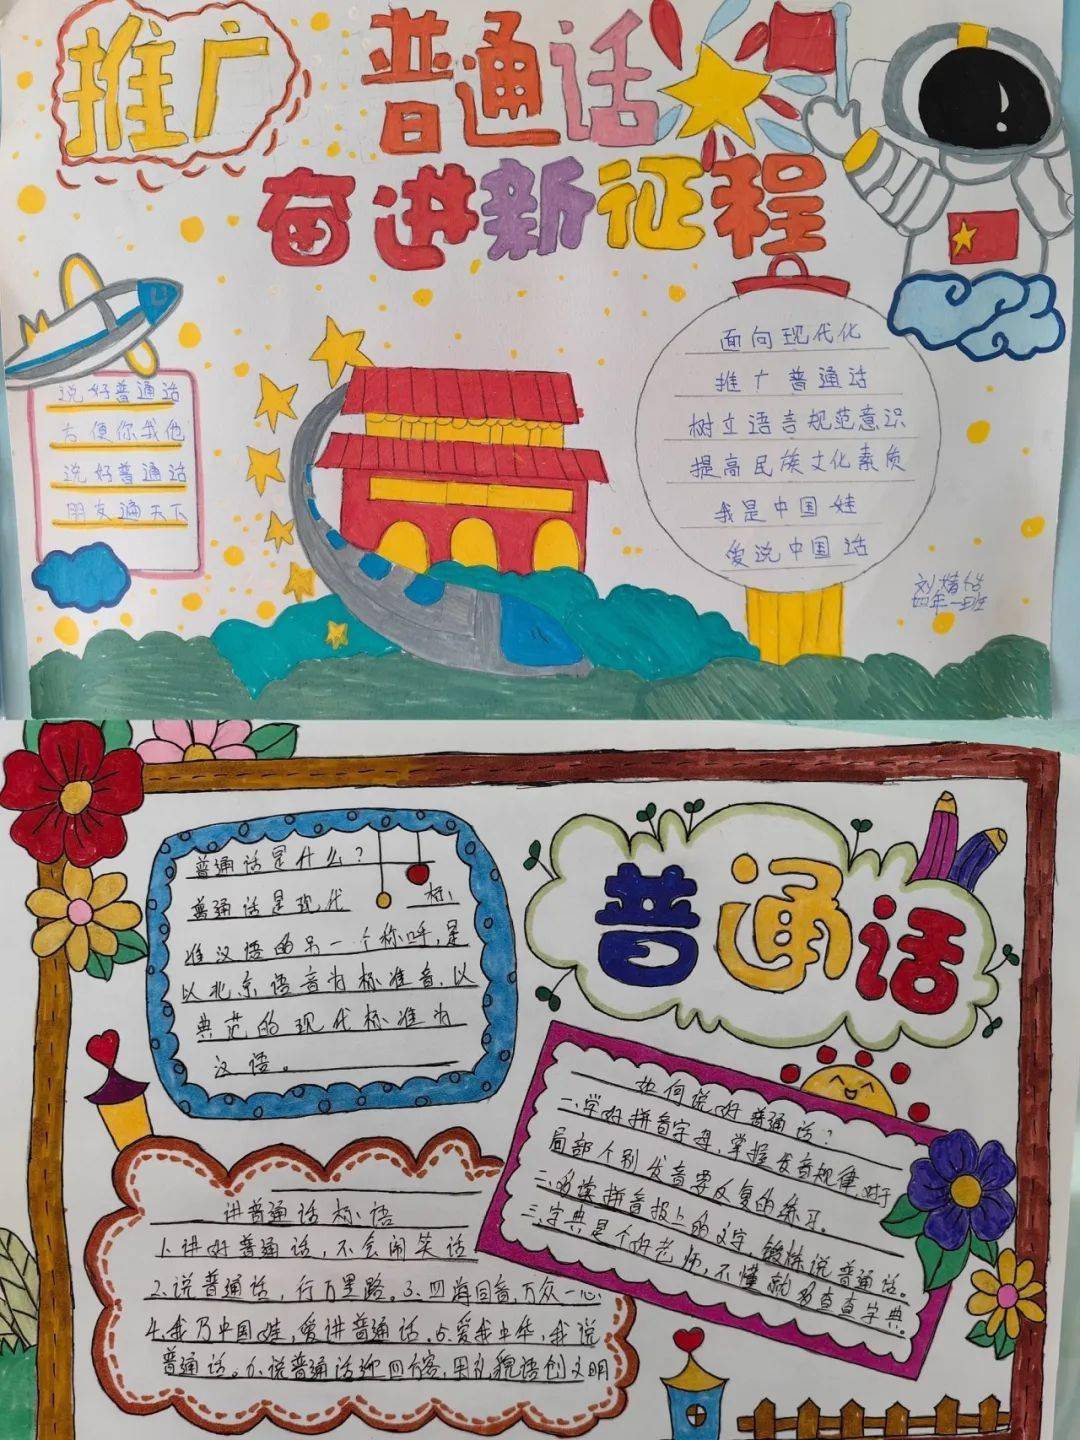 推广 普通话
奋进新征程
说好普通话
方便你我他
说好普通话
朋友遍天下
面向现代化
推广普通话
树立语言规范意识
提高民族文化素质
我是中国娃
爱说中国话
四年一班
普通话是什么?
普通话是现代 标
准汉语的另一个称呼,是
以北京语音为标准音,以
典范的现代标准为
汉语。
普通话
如何说好普通话?
一、学好拼音字母,掌握发音规律,对于
局部个别发音要反复的练习。
二、多读拼音报上的文字,锻炼说普通话。
三、字典是个好老师,不懂就多查查字典。
讲普通话标语
1、讲好普通话,不会闹笑话
2、说普通话,行万里路。3、四海同音,万众一心
4、我乃中国娃,爱讲普通话。5、爱我中华,我说
普通话。6、说普通话迎四方客,用礼貌语创文明